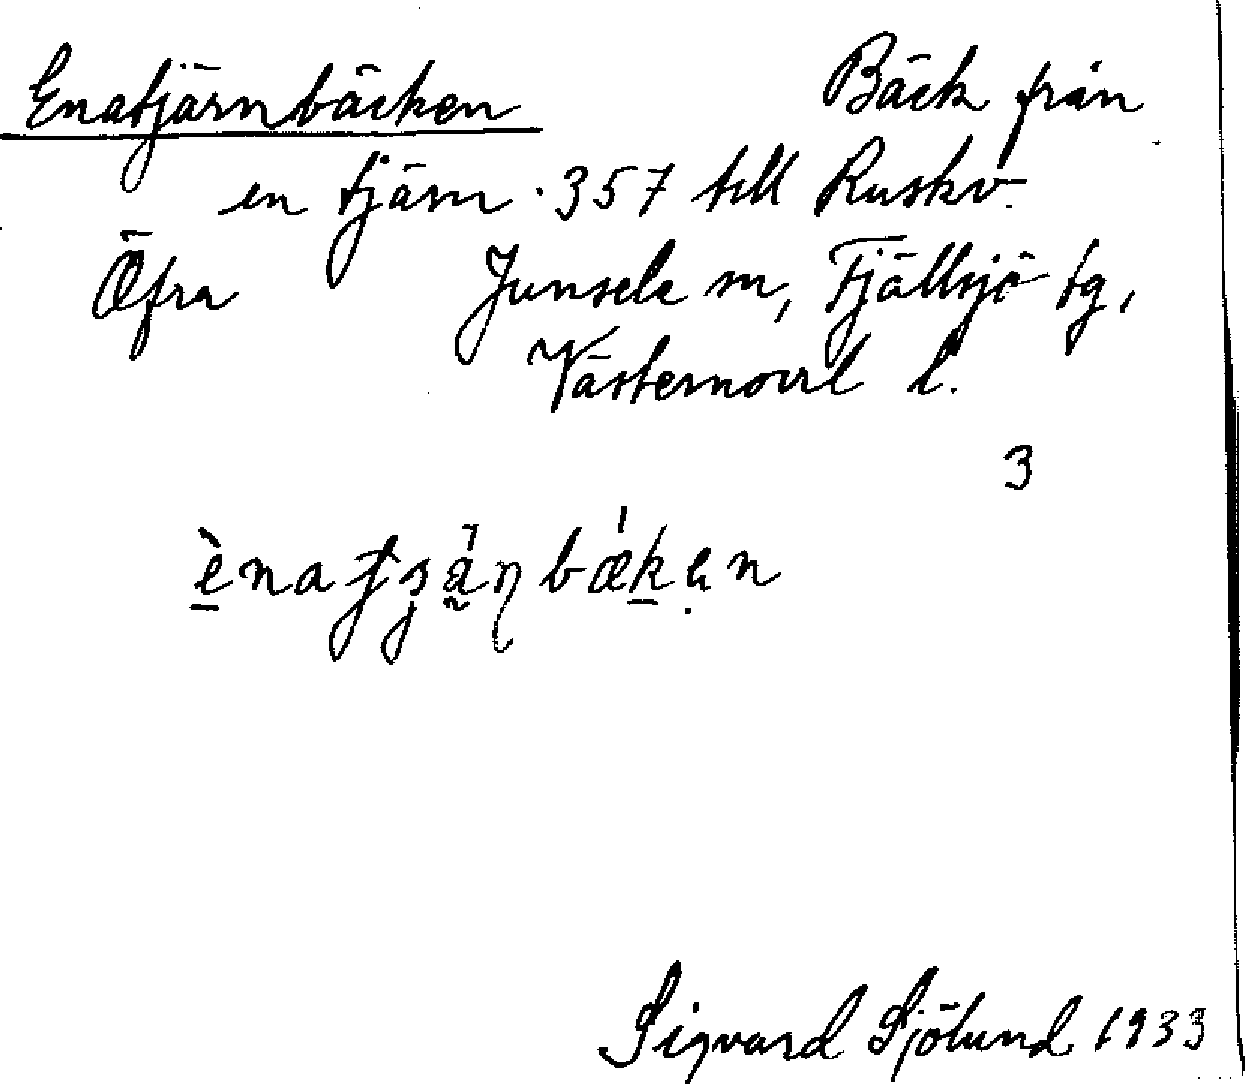 Enatjärnbäcken Bäck från
en tjärn · 357 till Ruskv.
Öfra Junsele sn, Fjällsjö tg,
Västernorrl l.
3
Sigvard Sjölund 1933